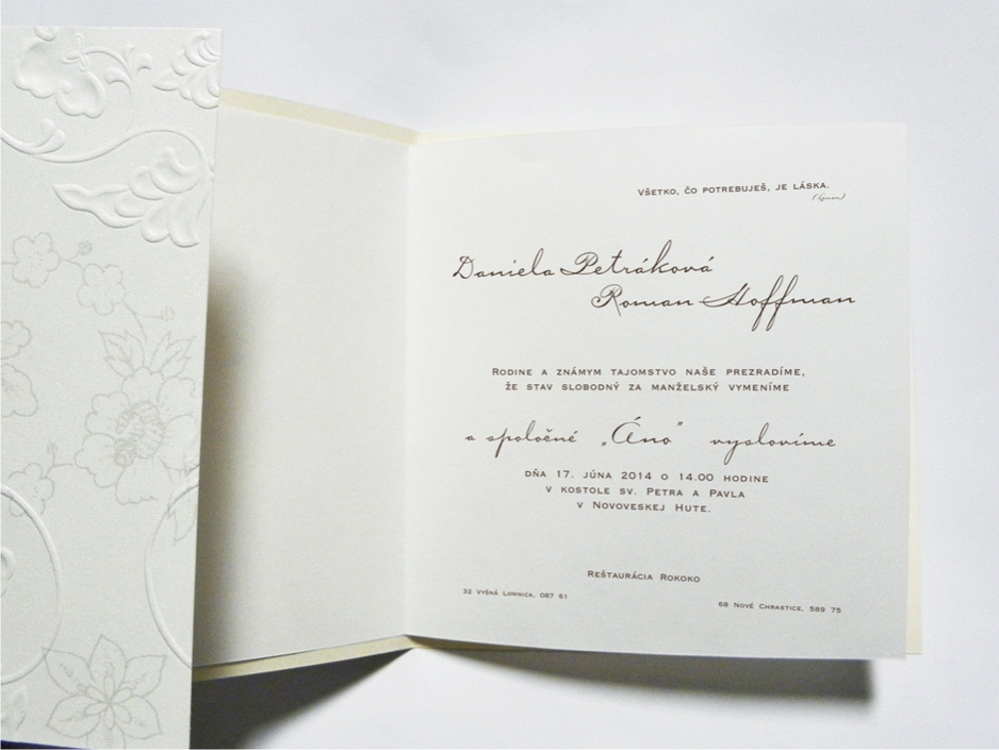 Všetko, čo potrebuješ, je láska.
(Lennon)
Daniela Petráková
Roman Hoffman
Rodine a známym tajomstvo naše prezradíme,
že stav slobodný za manželský vymeníme
a spoločné „Áno“ vyslovíme
dňa 17. júna 2014 o 14.00 hodine
v kostole sv. Petra a Pavla
v Novoveskej Hute.
Reštaurácia Rokoko
32 Vyšná Lomnica, 087 61
68 Nové Chrastice, 589 75